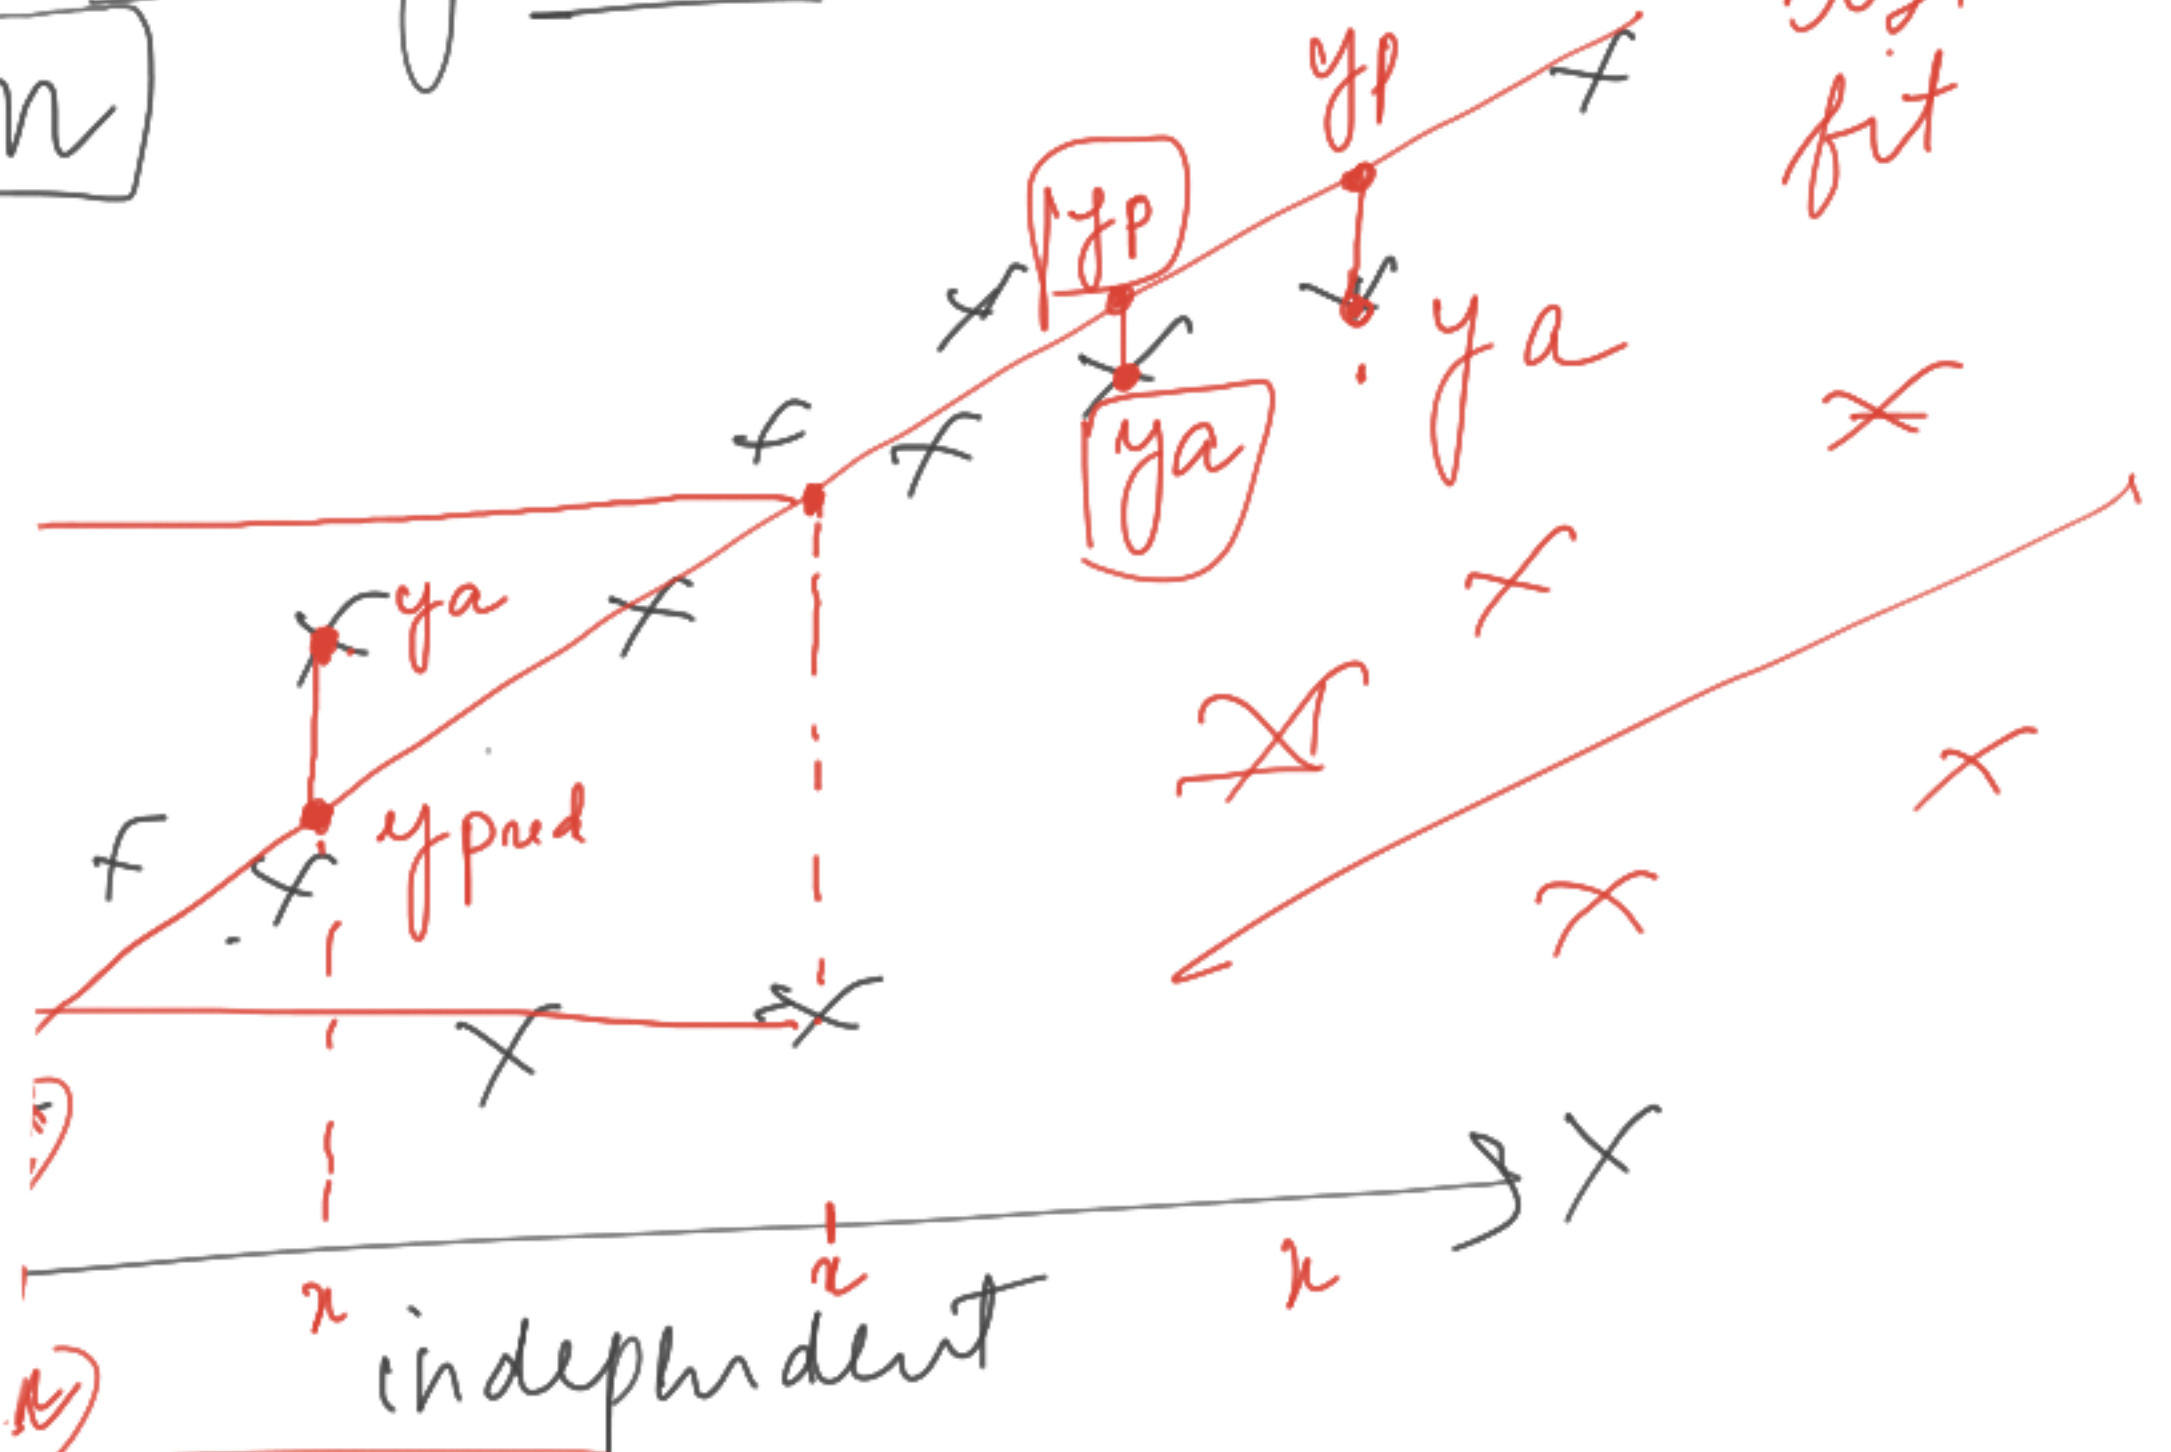 n
yp
fit
yp
ya
ya
ya
ypred
X
x
x
x
independent